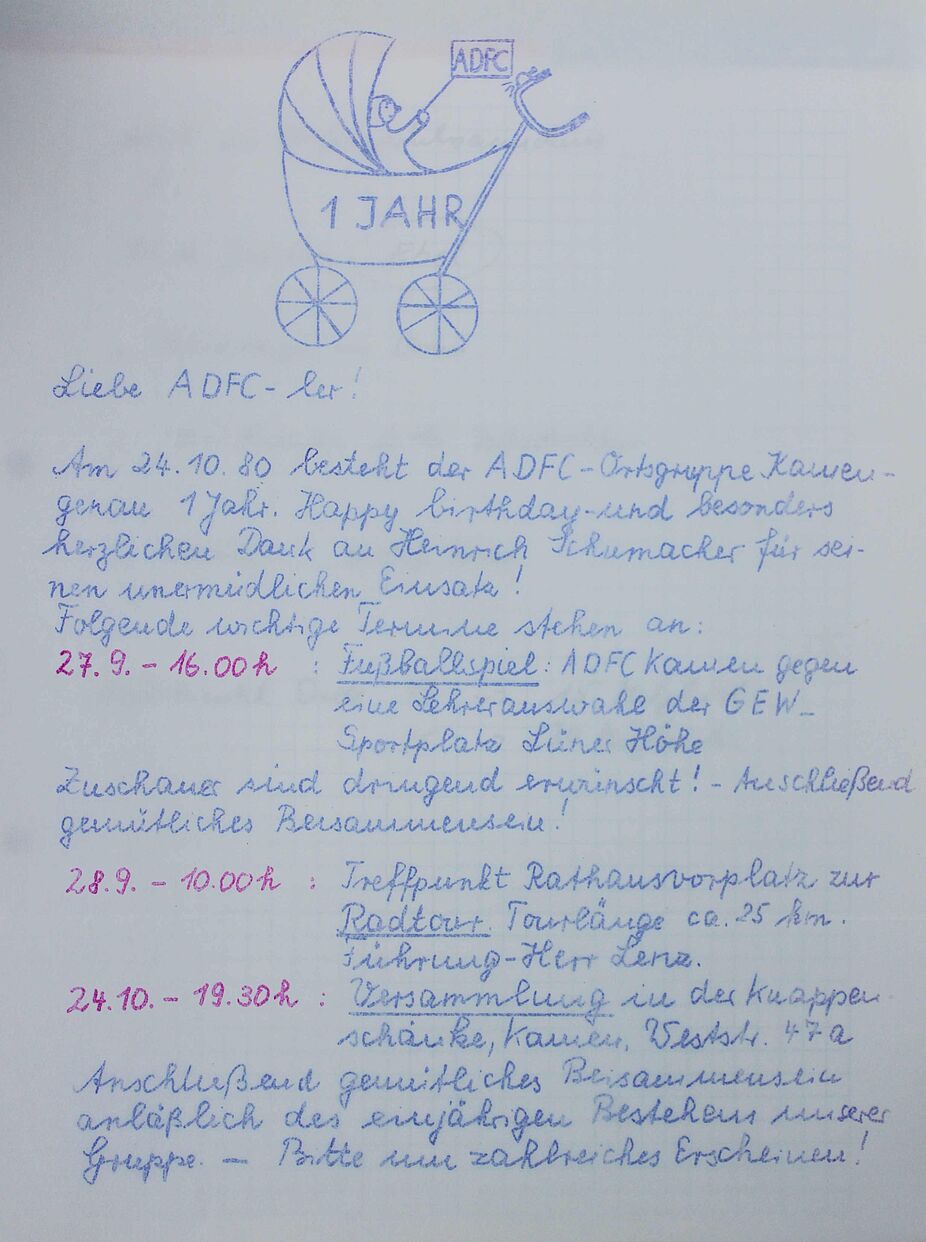 ADFC
1 JAHR
Liebe ADFC-ler!
Am 24.10.80 besteht der ADFC-Ortsgruppe Kamen-
genau 1 Jahr. Happy birthday-und besonders
herzlichen Dank an Heinrich Schumacher für sei-
nen unermüdlichen Einsatz!
Folgende wichtige Termine stehen an:
27.9. - 16.00h : Fußballspiel: ADFC Kamen gegen
eine Lehrerauswahl der GEW-
Sportplatz Lüner Höhe
Zuschauer sind dringend erwünscht! - Anschließend
gemütliches Beisammensein!
28.9. - 10.00h : Treffpunkt Rathausvorplatz zur
Radtour. Tourlänge ca. 25 km.
Führung-Herr Lenz.
24.10. - 19.30h : Versammlung in der Knappen-
schänke, Kamen, Weststr. 47a
Anschließend gemütliches Beisammensein
anläßlich des einjährigen Bestehens unserer
Gruppe. - Bitte um zahlreiches Erscheinen!